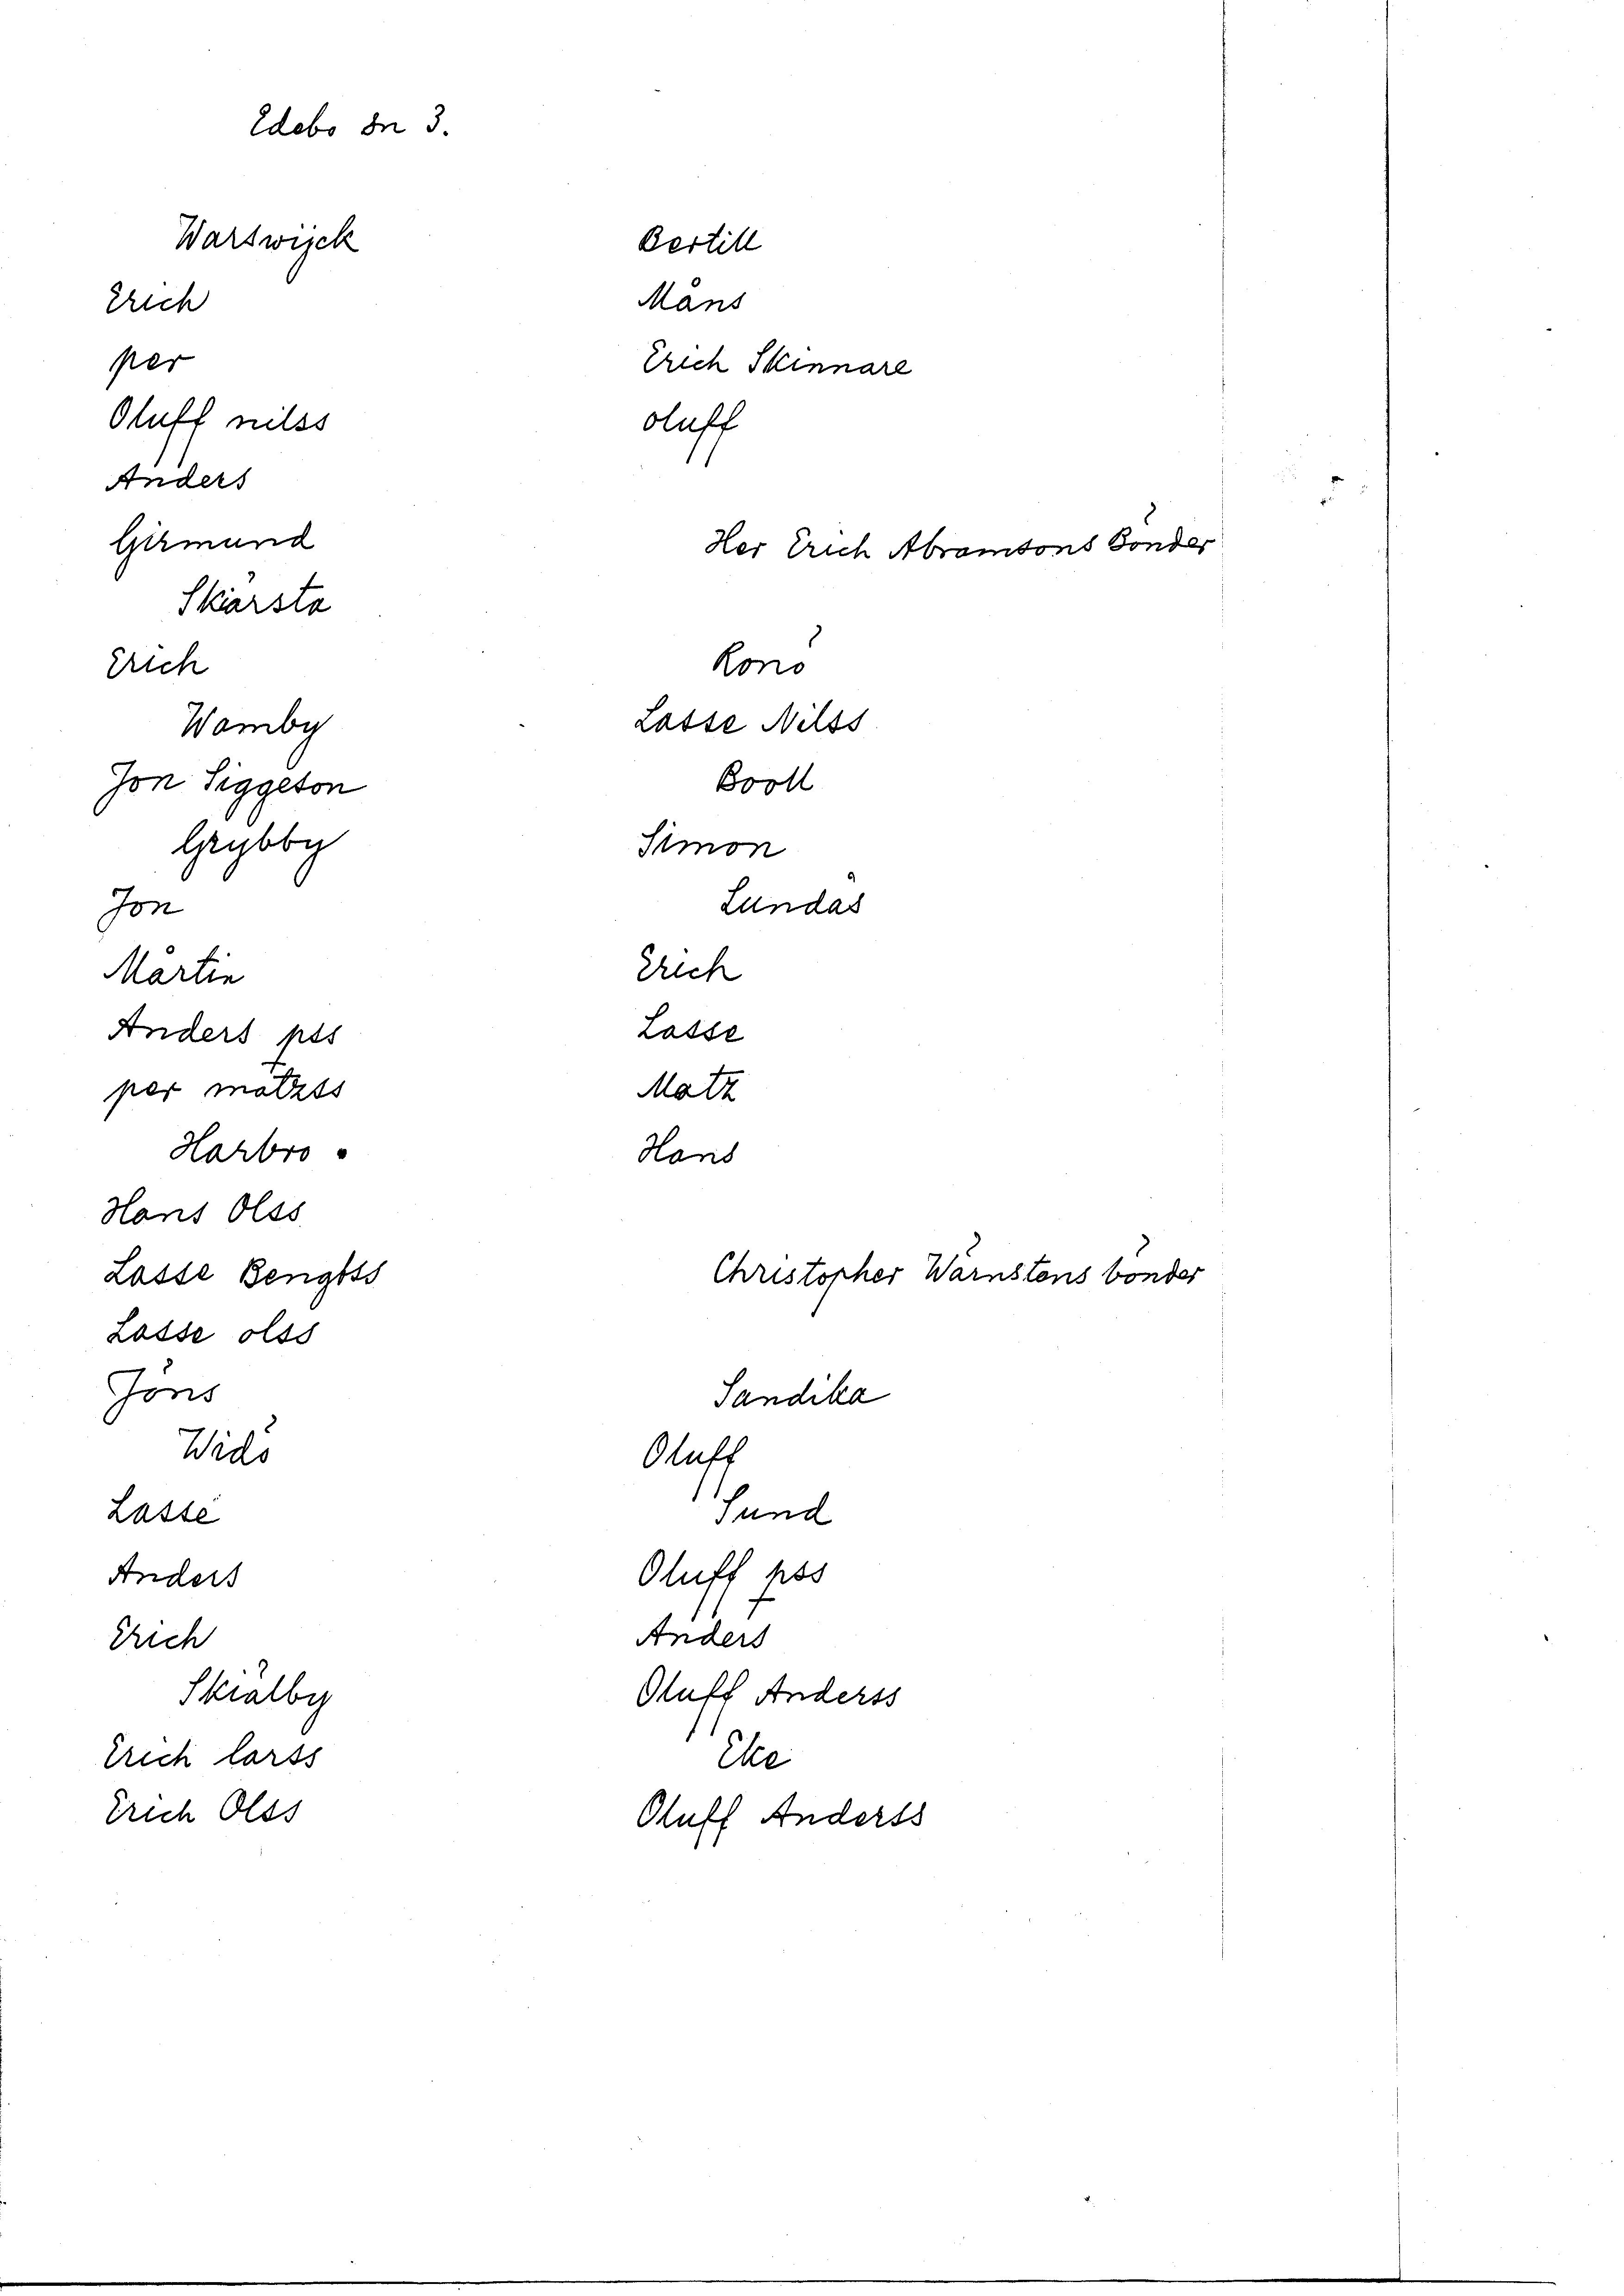 Edebo Sn 3.
Warswijck
Erich
per
Oluff nilss
Anders
Girmund
Skiärsta
Erich
Wamby
Jon Siggeson
Grybby
Jon
Mårtin
Anders pss
per matzss
Harbro
Hans Olss
Lasse Bengtss
Lasse olss
Jöns
Widö
Lasse
Anders
Erich
Skiälby
Erich larss
Erich Olss
Bertill
Måns
Erich Skinnare
oluff
Her Erich Abramsons Bönder
Ronö
Lasse Nilss
Booll
Simon
Lundås
Erich
Lasse
Matz
Hans
Christopher Wärnstens bönder
Sandika
Oluff
Sund
Oluff pss
Anders
Oluff Anderss
Eke
Oluff Anderss